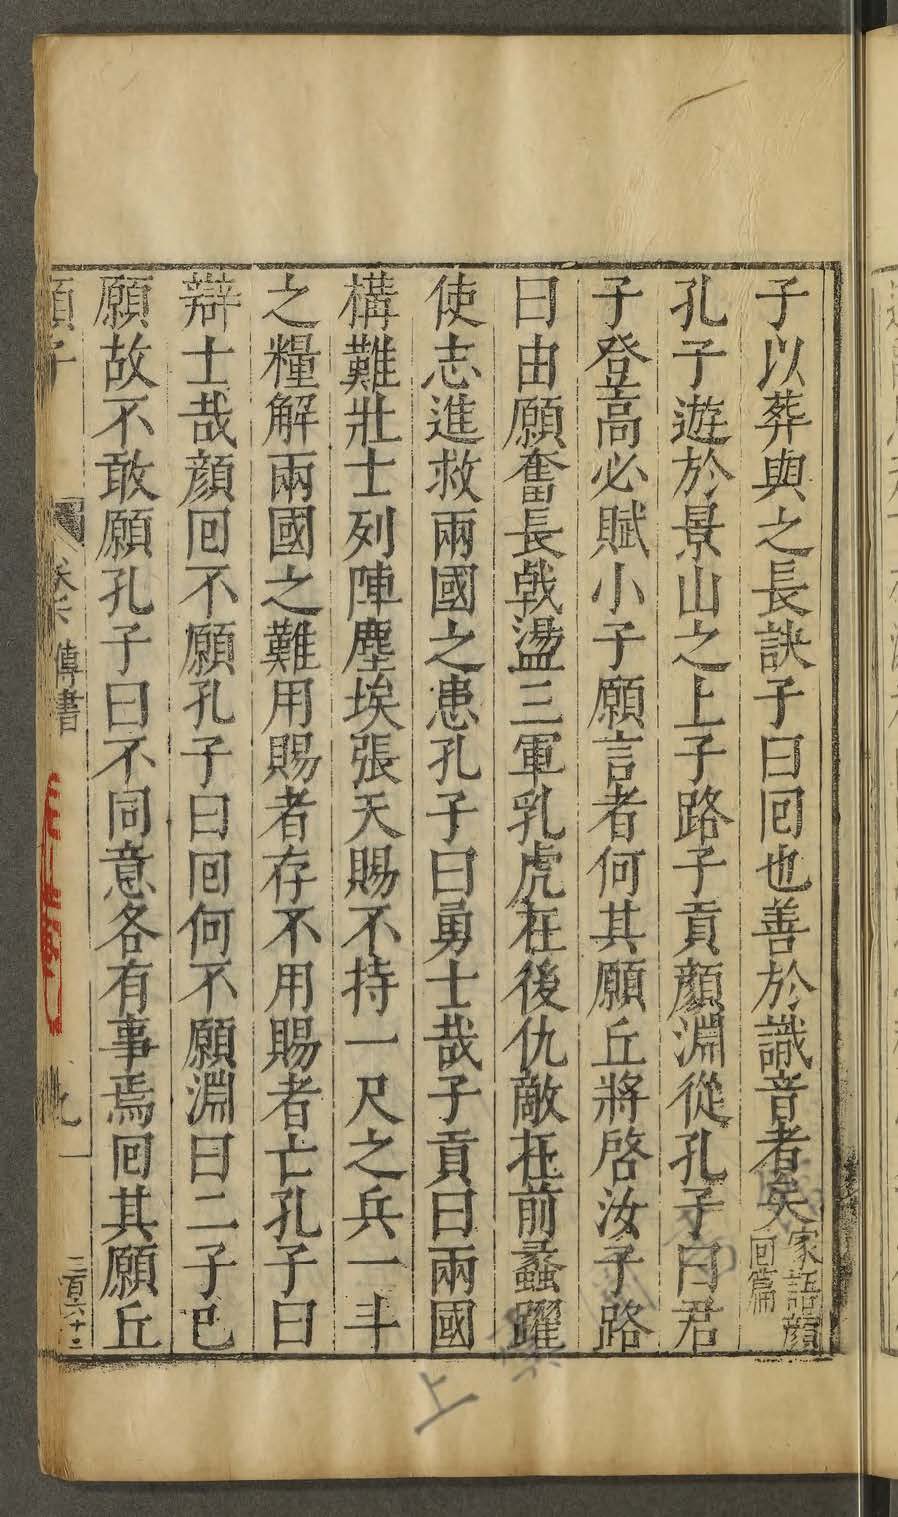 子以葬與之長訣子曰回也善於識音者矣家語顔回篇
孔子遊於景山之上子路子貢顔淵從孔子曰君
子登高必賦小子願言者何其願丘將啓汝子路
曰由願奮長戟盪三軍乳虎在後仇敵在前蠡躍
使志進救兩國之患孔子曰勇士哉子貢曰兩國
構難壯士列陣塵埃張天賜不持一尺之兵一斗
之糧解兩國之難用賜者存不用賜者亡孔子曰
辯士哉顔回不願孔子曰回何不願淵曰二子已
願故不敢願孔子曰不同意各有事焉回其願丘
傳書
九
三百六十三